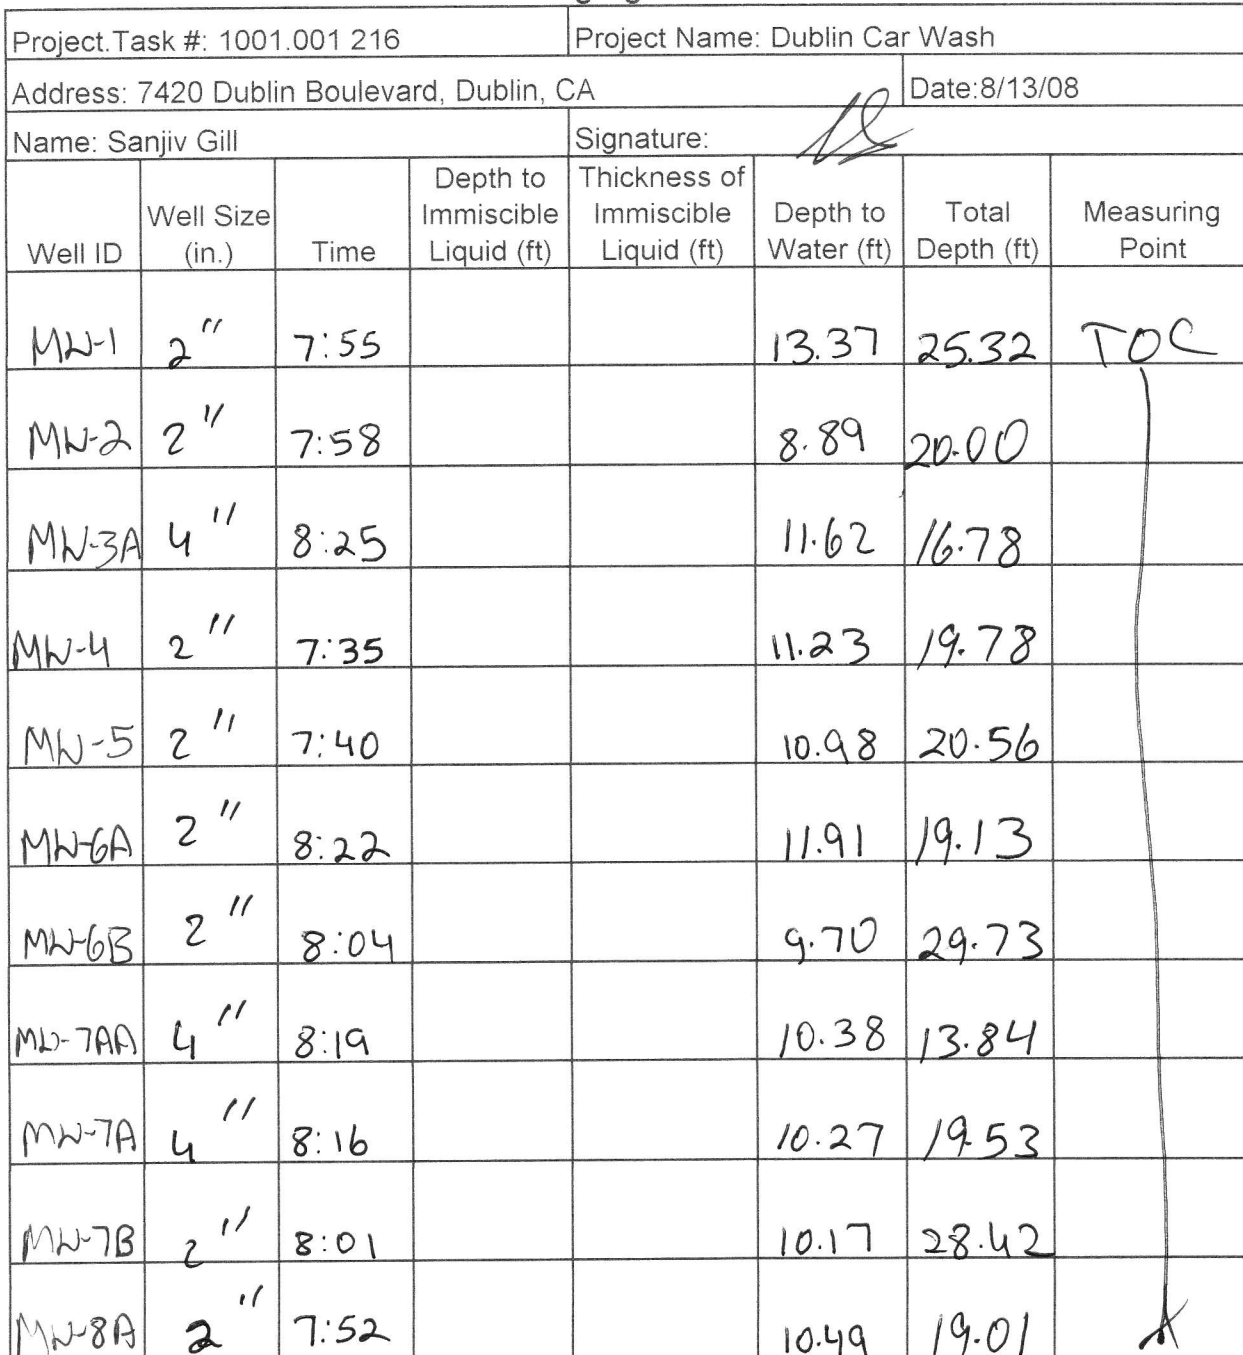 Project.Task #: 1001.001 216 Project Name: Dublin Car Wash
Address: 7420 Dublin Boulevard, Dublin, CA Date:8/13/08
Name: Sanjiv Gill Signature:
Well ID Well Size (in.) Time Depth to Immiscible Liquid (ft) Thickness of Immiscible Liquid (ft) Depth to Water (ft) Total Depth (ft) Measuring Point
MW-1 2" 7:55 13.37 25.32 TOC
MW-2 2" 7:58 8.89 20.00
MW-3A 4" 8:25 11.62 16.78
MW-4 2" 7:35 11.23 19.78
MW-5 2" 7:40 10.98 20.56
MW-6A 2" 8:22 11.91 19.13
MW-6B 2" 8:04 9.70 29.73
MW-7AA 4" 8:19 10.38 13.84
MW-7A 4" 8:16 10.27 19.53
MW-7B 2" 8:01 10.17 28.42
MW-8A 2" 7:52 10.49 19.01